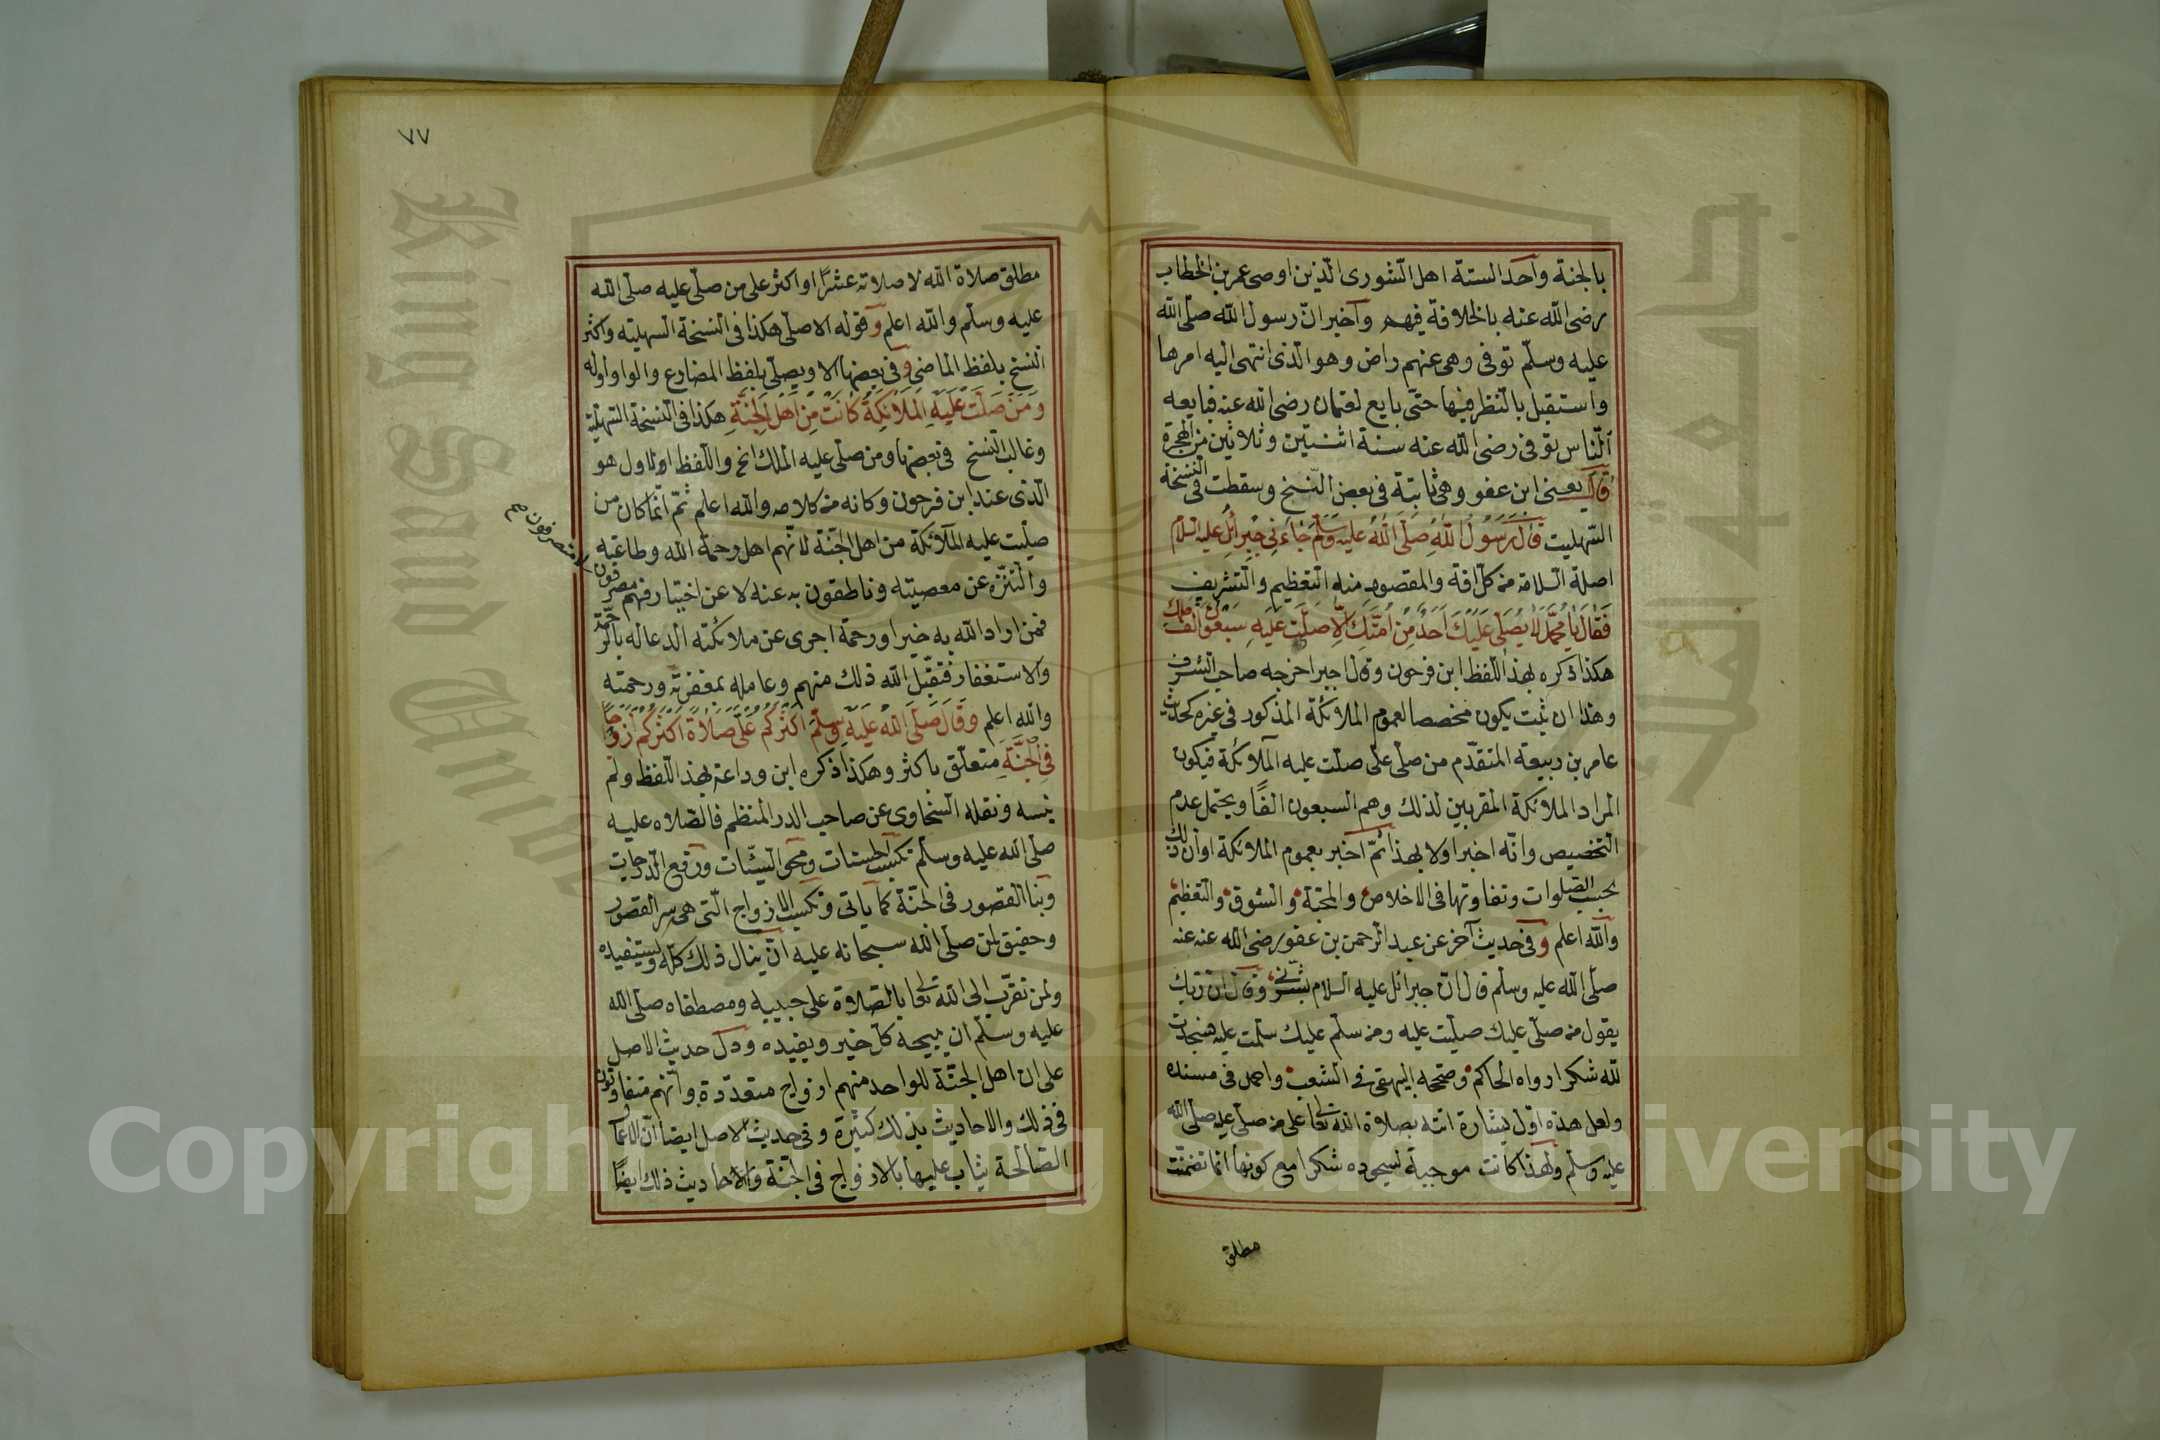 بالجنة وأحد الستة اهل الشورى الذين اوصى عمر بن الخطاب
رضى الله عنه بالخلافة فيهم وأخبر ان رسول الله صلى الله
عليه وسلم توفى وهو عنهم راض وهو الذى انتهى اليه امرها
واستقبل بالنظر فيها حتى بايع لعثمان رضى الله عنه فبايعه
الناس توفى رضى الله عنه سنة اثنتين وثلاثين من الهجرة
قال يعنى ابن عوف وهى ثابتة فى بعض النسخ وسقطت فى النسخة
السهلية قال رسول الله صلى الله عليه وسلم جاءنى جبرائل عليه السلام
اصله السلامة من كل افة والمقصود منه التعظيم والتشريف
فقال يا محمد لا يصلى عليك احد من امتك الا صلت عليه سبعون الف ملك
هكذا ذكره بهذا اللفظ ابن فرحون وقال جبر اخرجه صاحب الشرف
وهذا ان ثبت يكون مخصصا لعموم الملائكة المذكور فى غيره كحديث
عامر بن ربيعة المتقدم من صلى على صلت عليه الملائكة فيكون
المراد الملائكة المقربين لذلك وهم السبعون الفا ويحتمل عدم
التخصيص وانه اخبر اولا بهذا ثم اخبر بعموم الملائكة او ان ذلك
بحسب الصلوات وتفاوتها فى الاخلاص والمحبة والشوق والتعظيم
والله اعلم وفى حديث آخر عن عبد الرحمن بن عوف رضى الله عنه عنه
صلى الله عليه وسلم قال ان جبرائل عليه السلام بشرنى وقال ان ربك
يقول من صلى عليك صليت عليه ومن سلم عليك سلمت عليه فسجدت
لله شكرا رواه الحاكم وصححه البيهقى فى الشعب واحمد فى مسنده
ولعل هذه اول بشارة اتته بصلاة الله تعا على من صلى عليه صلى الله
عليه وسلم ولهذا كانت موجبة لسجوده شكرا مع كونها انما تضمنت
مطلق
٧٧
مطلق صلاة الله لا صلاته عشرا او اكثر على من صلى عليه صلى الله
عليه وسلم والله اعلم وقوله الا صلى هكذا فى النسخة السهلية واكثر
النسخ بلفظ الماضى وفى بعضها الا ويصلى بلفظ المضارع والواو اوله
ومن صلت عليه الملائكة كانت من اهل الجنة هكذا فى النسخة السهلية
وغالب النسخ فى بعضها ومن صلى عليه الملك الخ واللفظ الاول هو
الذى عند ابن فرحون وكانه من كلامه والله اعلم ثم انما كان من
صليت عليه الملآئكة من اهل الجنة لانهم اهل رحمة الله وطاعته
والتنزه عن معصيته وناطقون به عنه لا عن اختيارفهم مصرفون
لا متصرفون صح
فمن اراد الله به خيرا ورحمة اجرى عن ملائكته الدعا له بالرحمة
والاستغفار فتقبل الله ذلك منهم وعامله بمغفرته ورحمته
والله اعلم وقال صلى الله عليه وسلم اكثركم على صلاة اكثركم ازواجا
فى الجنة متعلق باكثر وهكذا ذكره ابن وداعة بهذا اللفظ ولم
ينسبه ونقله السخاوى عن صاحب الدر المنظم فالصلاه عليه
صلى الله عليه وسلم تكسب الحسنات ومحو السيئات ورفع الدرجات
وبنا القصور فى الجنة كما ياتى وتكسب الازواج التى هى سر القصور
وحقيق لمن صلى الله سبحانه عليه ان ينال ذلك كله ويستفيده
ولمن تقرب الى الله تعا بالصلاة على حبيبه ومصطفاه صلى الله
عليه وسلم ان يبيحه كل خير ويفيده ودل حديث الاصل
على ان اهل الجنة للواحد منهم ازواج متعددة وانهم متفاوتون
فى ذلك والاحاديث بذلك كثيرة وفى حديث الاصل ايضا ان الاعمال
الصالحة يثاب عليها بالازواج فى الجنة والاحاديث ذلك ايضا
Copyright © King Saud University